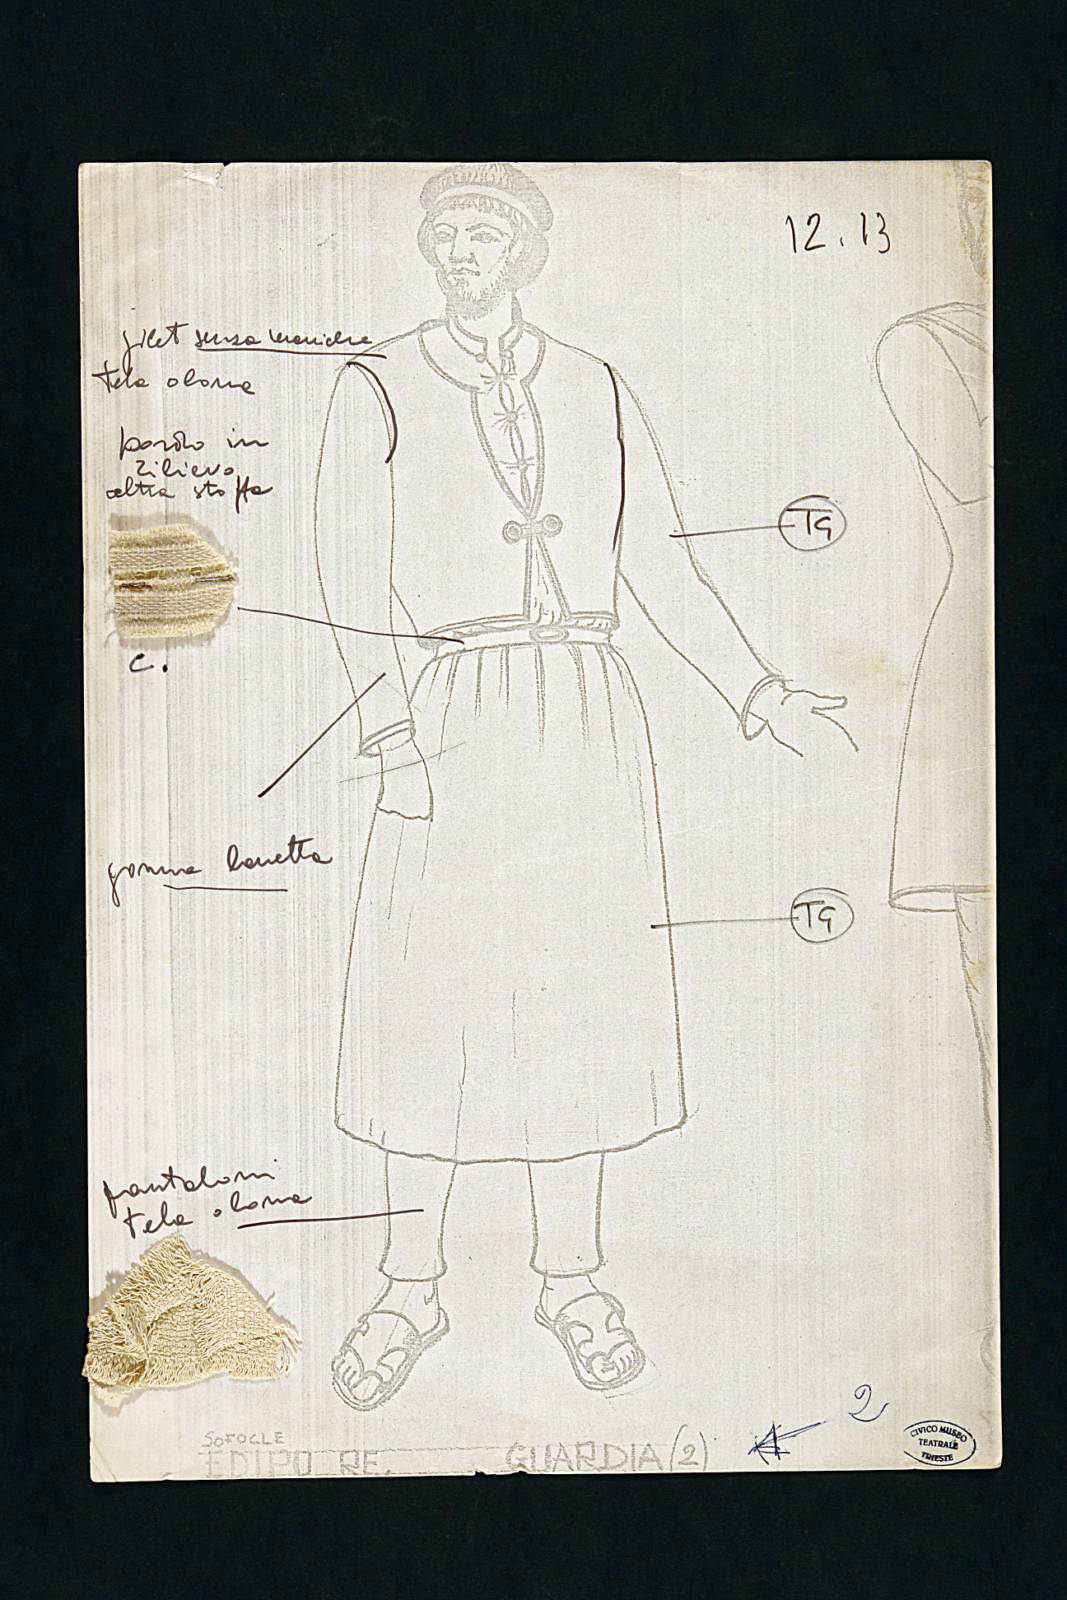 12.13
gilet senza maniche
tela olona
bordo in
rilievo
altra stoffa
TG
C.
gonna
TG
pantaloni
tela olona
2
SOFOCLE
EDIPO RE.
GUARDIA (2)
CIVICO MUSEO
TEATRALE
TRIESTE